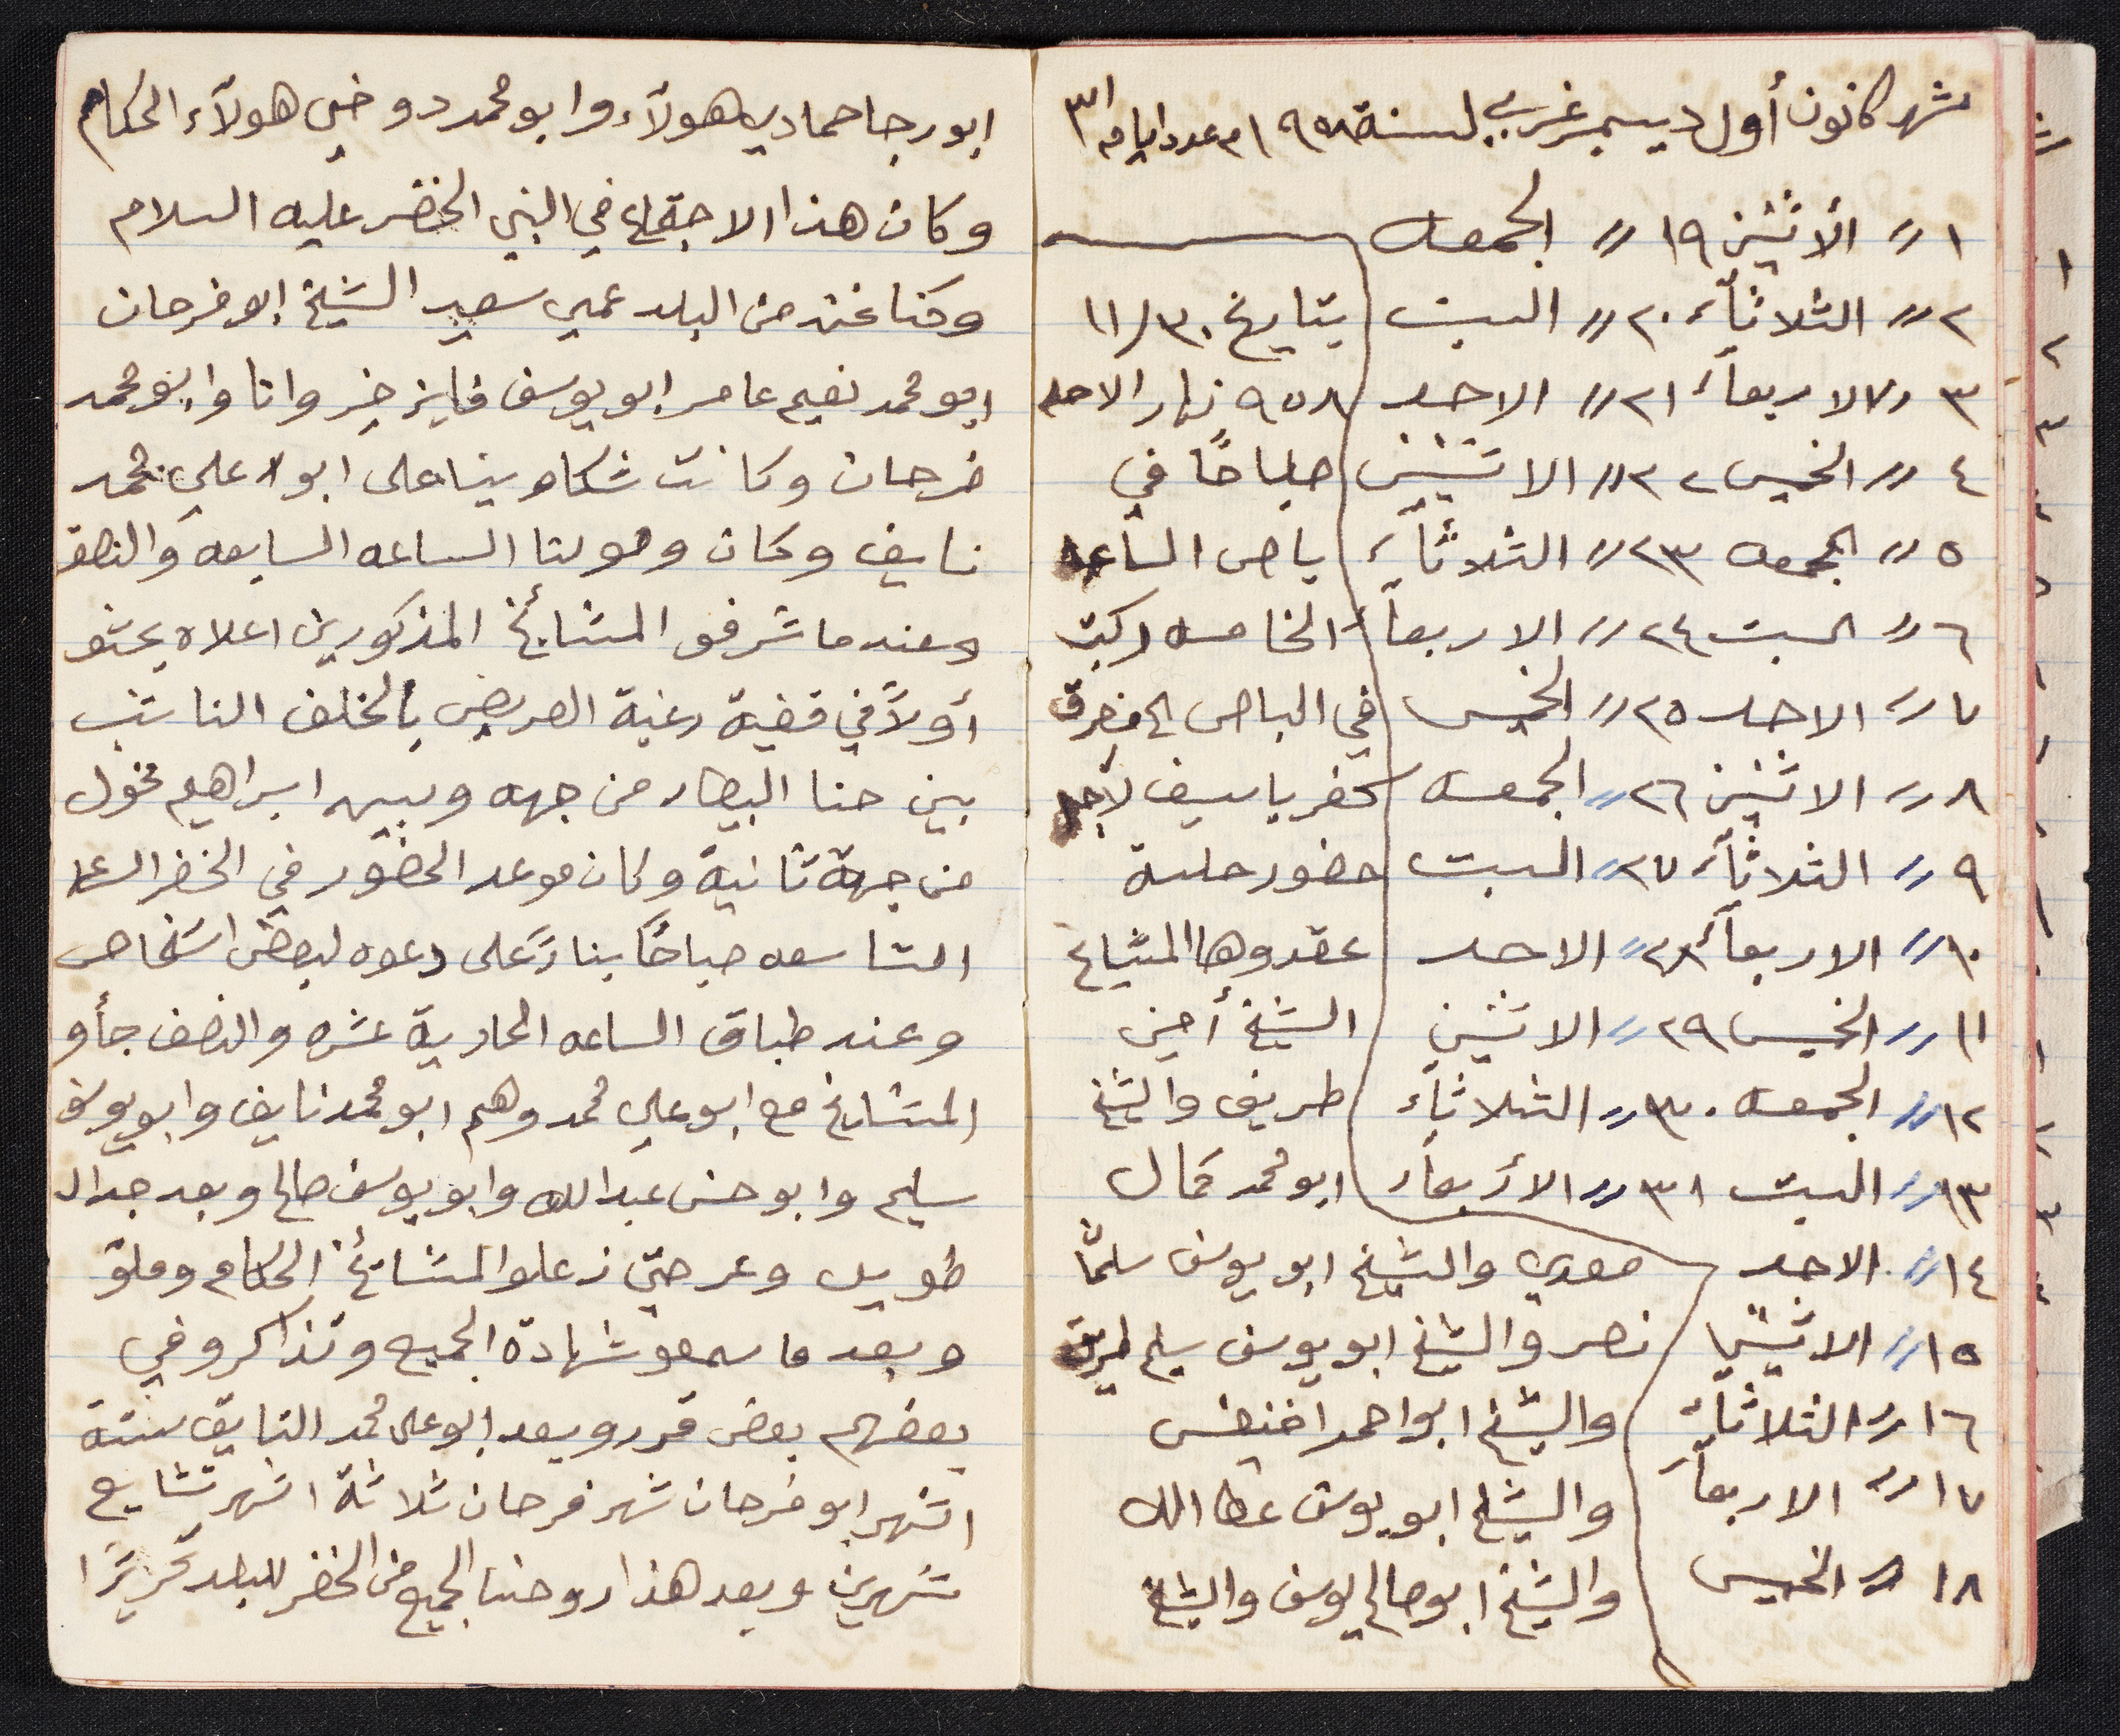 شهر كانون أول ديسمبر غربي لسنة ١٩٥٨م عدد ايامه ٣١
١ // الأثنين ١٩ // الجمعه
٢ // الثلاثآء ٢٠ // السبت
٣ // الاربعآء ٢١ // الاحد
٤ // الخميس ٢٢ // الاثنين
٥ // الجمعه ٢٣ // الثلاثآء
٦ // السبت ٢٤ // الاربعآء
٧ // الاحد ٢٥ // الخميس
٨ // الاثنين ٢٦ // الجمعه
٩ // الثلاثآء ٢٧ // السبت
١٠ // الاربعآء ٢٨ // الاحد
١١ // الخميس ٢٩ // الاثنين
١٢ // الجمعه ٣٠ // الثلاثآء
١٣ // السبت ٣١ // الأربعآء
١٤ // الاحد
١٥ // الاثنين
١٦ // الثلاثآء
١٧ // الاربعآء
١٨ // الخميس
بتايخ ٣٠/١١
٩٥٨ نهار الاحد
صباحًا في
باص الساعه
الخامسه ركبت
في الباص الى مفرق
كفر ياسيف لاجل
حضور جلسة
عقدوها المشايخ
الشيخ أمين
طريف والشيخ
ابو محمد كمال
معدي والشيخ ابو يوسف سلمان
نصر والشيخ ابو يوسف سليم طريف
والشيخ ابو احمد اخنيفس
والشيخ ابو يوسف عطا الله
والشيخ ابو صالح يوسف والشيخ
ابو رجا حمادي هولآء وابو محمد دوخي هولآء الحكام
وكان هذا الاجتماع في النبي الخضر عليه السلام
وكنا نحن من البلد عمي سعيد الشيخ ابو فرحان
ابو محمد نعيم عامر ابو يوسف فايز خير وانا وابو محمد
فرحان وكانت شكاوينا على ابو علي محمد
نايف وكان وصولنا الساعه السابعه والنصف
وعندما شرفو المشائخ المذكورين اعلاه بحثو
أولاً في قضية رغبة العريض بالخلف الناشب
بين حنا البيطار من جهه وبين ابراهيم مخول
من جهة ثانية وكان موعد الحضور في الخضر الساعه
التاسعه صباحًا بنآءً على دعوه لبعض اشخاص
وعند طباق الساعه الحادية عشره والنصف جأو
المشايخ مع ابو علي محمد وهم ابو محمد نايف وابو يوسف
سليم وابو حسن عبدالله وابو يوسف صالح وبعد جدال
طويل وعر حتى زعلو المشائخ الحكام وملو
وبعد ما سمعو شهادة الجميع وتذاكرو في
بعضهم بعض قررو يبعد ابو علي محمد النايف ستة
اشهر ابو فرحان شهر فرحان ثلاثة اشهر تشايع
شهرين وبعد هذا روحنا الجميع من الخضر للبلد تحريرًا